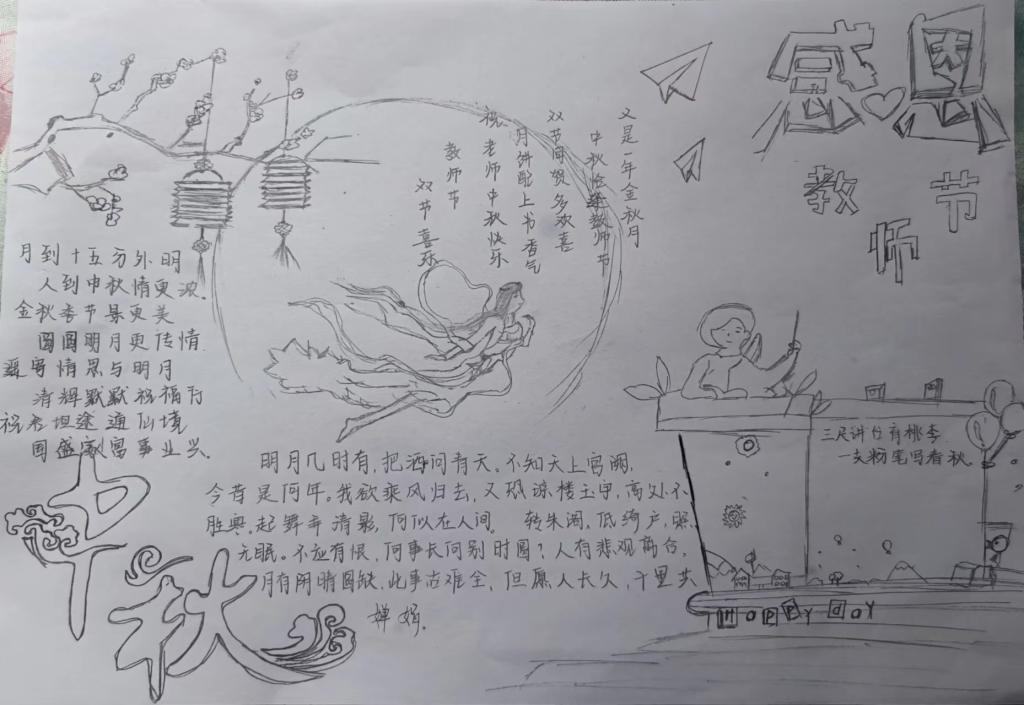 感恩
教师节
又是一年金秋月
中秋恰逢教师节
双节同贺多欢喜
月饼配上书香气
祝老师中秋快乐
教师节
双节喜乐
月到十五分外明
人到中秋情更浓.
金秋季节景更美
圆圆明月更传情
寄情思与明月
清辉默默祝福行
祝君坦途通仙境
国盛家富事业兴.
中秋
明月几时有,把酒问青天。不知天上宫阙,
今昔是何年。我欲乘风归去,又恐琼楼玉宇,高处不
胜寒.起舞弄清影,何似在人间 转朱阁,低绮户,照
无眠。不应有恨,何事长向别时圆?人有悲观离合,
月有阴晴圆缺,此事古难全,但愿人长久,千里共
婵娟.
三尺讲台育桃李
一支粉笔写春秋.
HAPPY DAY